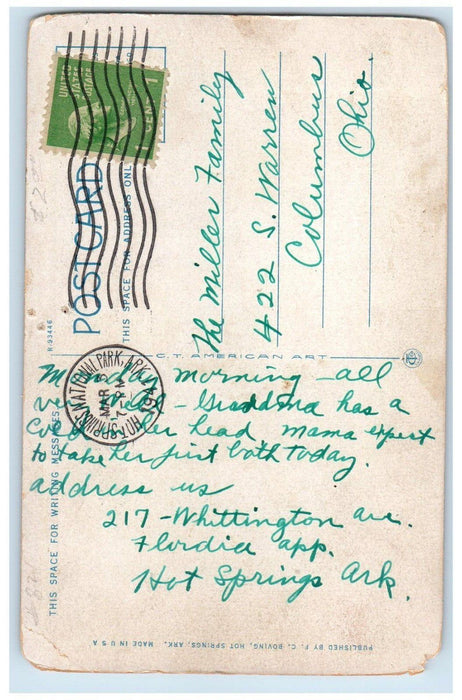 UNITED
STATES
POSTAGE
1 CENT 1
POST CARD
THIS SPACE FOR ADDRESS ONLY
R-93446
The Miller Family
422 S. Warren
Columbus
Ohio.
C.T. AMERICAN ART
HOT SPRINGS NATIONAL PARK, ARK.
MAR 3
PM
Monday morning - all
well - Grandma has a
her head. mama expert
to take her first bath today.
address us
217 - Whittington ave.
Flordia app.
Hot Springs Ark.
THIS SPACE FOR WRITING MESSAGES
PUBLISHED BY F. C. BOVING, HOT SPRINGS, ARK. MADE IN U S A